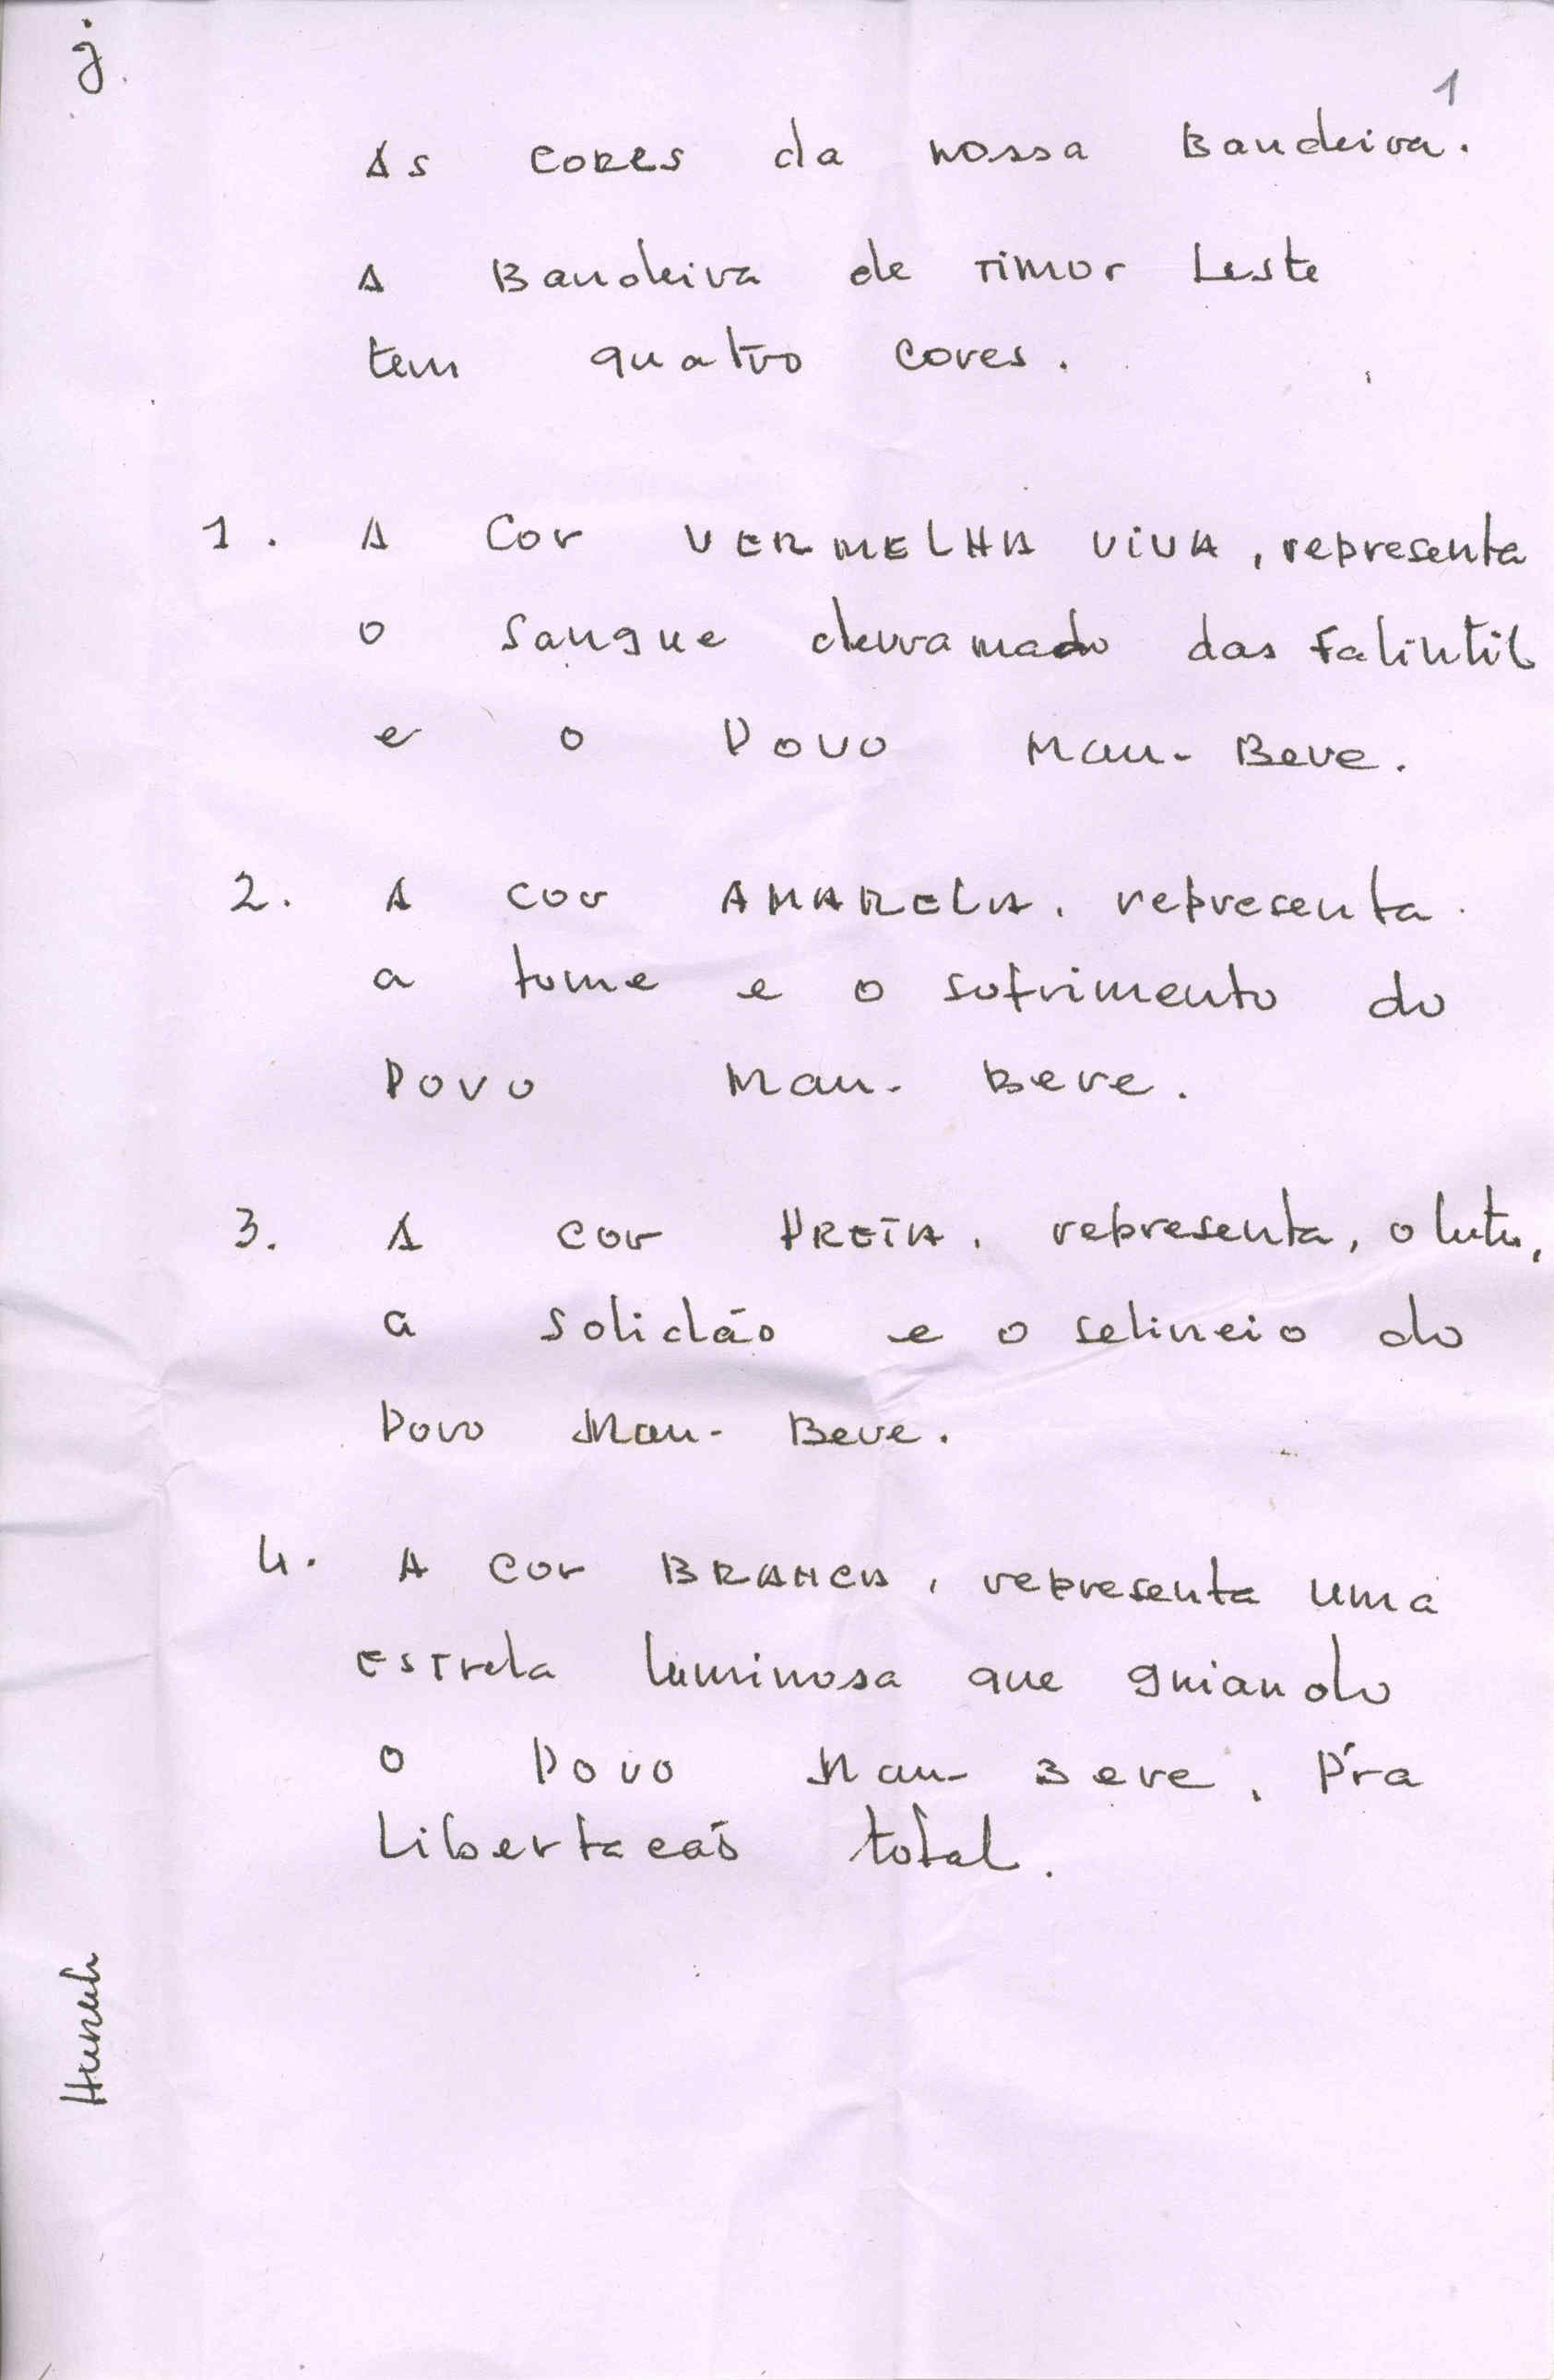 j.
1
As cores da nossa Bandeira.
A Bandeira de Timor Leste
tem quatro cores.
1. A Cor VERMELHA VIVA, representa
o Sangue derramado das Falintil
e o Povo Mau-Bere.
2. A cor AMARELA, representa
a fome e o sofrimento do
Povo Mau-Bere.
3. A cor PRETA, representa, o luto,
a solidão e o selineio do
Povo Mau-Bere.
4. A cor BRANCA, representa uma
estrela luminosa que guiando
o Povo Mau-Bere, P'ra
Libertacaõ total.